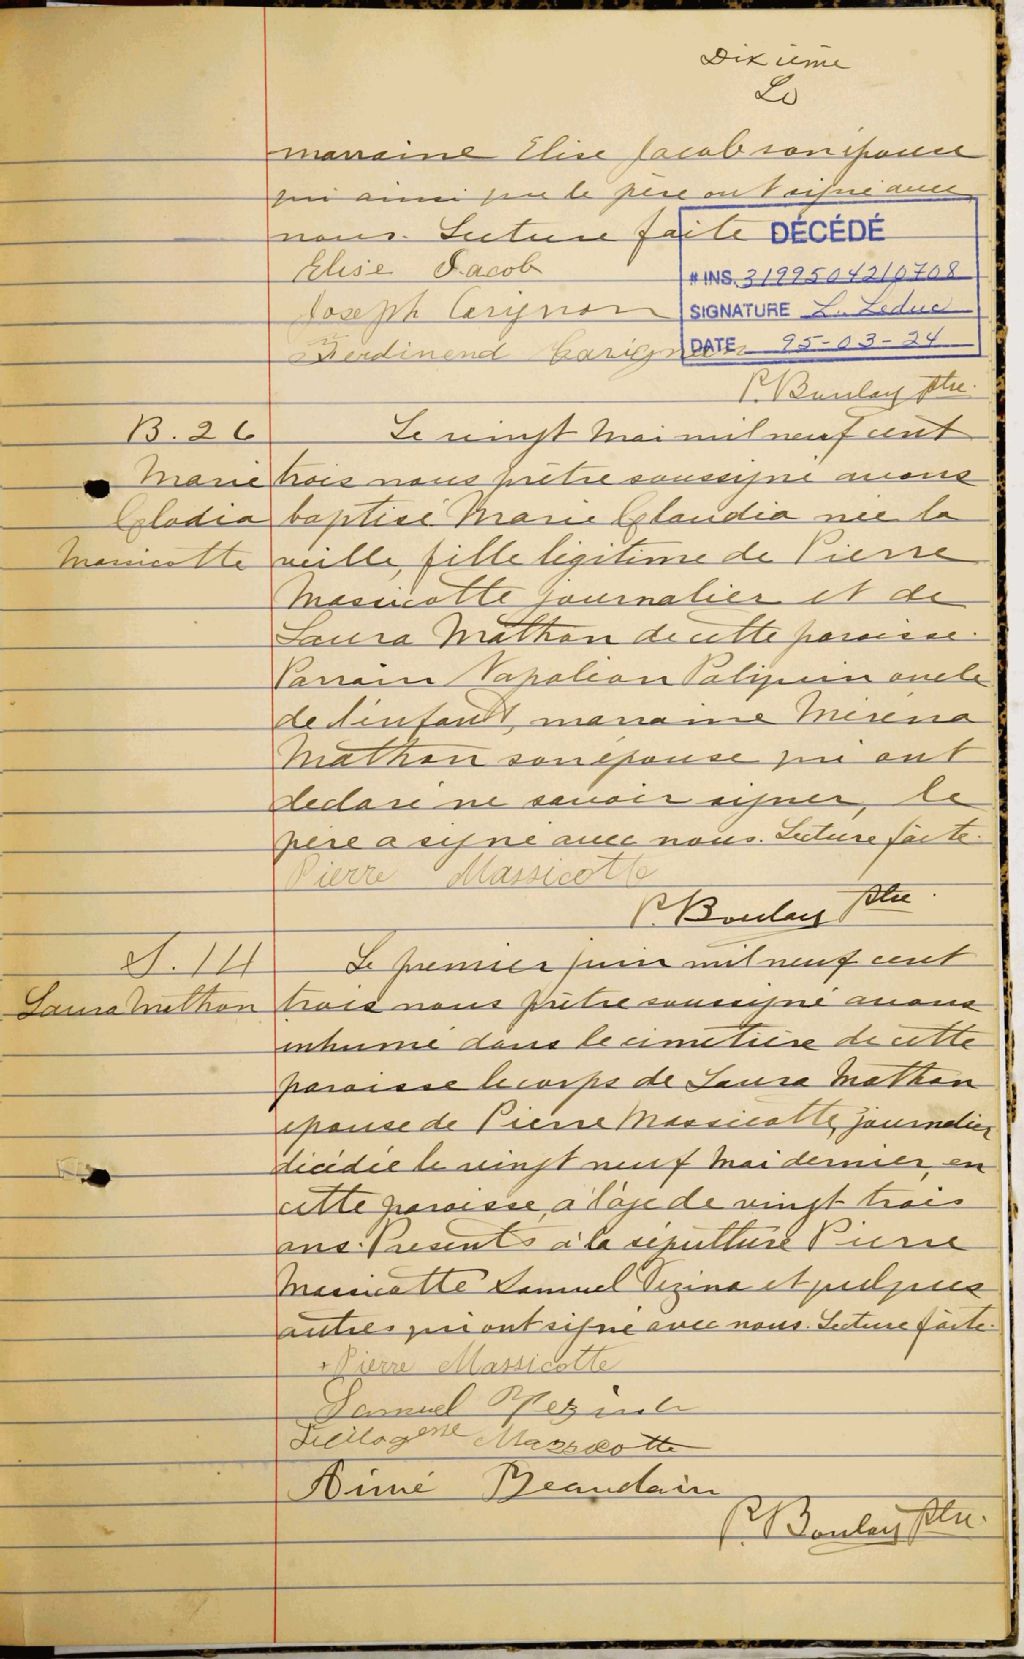 Dixième
Lo
marraine Elise Jacob son épouse
qui ainsi que le père ont signé avec
nous. Lecture faite
DÉCÉDÉ
# INS. 3199504210708
SIGNATURE L. Leduc
DATE 95-03-24
Elise Jacob
Joseph Carignan
Ferdinend Carignan
P. Boulay ptre.
B. 26
Marie
Clodia
Massicotte
Le vingt Mai mil neuf cent
trois nous prêtre soussigné avons
baptisé Marie Claudia née la
veille, fille légitime de Pierre
Massicotte journalier et de
Laura Mathon de cette paroisse.
Parrain Napoléon Paliquin oncle
de l'enfant, marraine Méréna
Mathon son épouse qui ont
declaré ne savoir signer, le
père a signé avec nous. Lecture faite.
Pierre Massicotte
P. Boulay ptre.
S. 14
Laura Mathon
Le premier juin mil neuf cent
trois nous prêtre soussigné avons
inhumé dans le cimetière de cette
paroisse le corps de Laura Mathon
epouse de Pierre Massicotte, journalier
décédée le vingt neuf Mai dernier, en
cette paroisse, à l'âge de vingt trois
ans. Presents à la sépulture Pierre
Massicotte Samuel Vezina et quelques
autres qui ont signé avec nous. Lecture faite.
Pierre Massicotte
Samuel Vezina
Massicotte
Aimé Beaudoin
P. Boulay ptre.